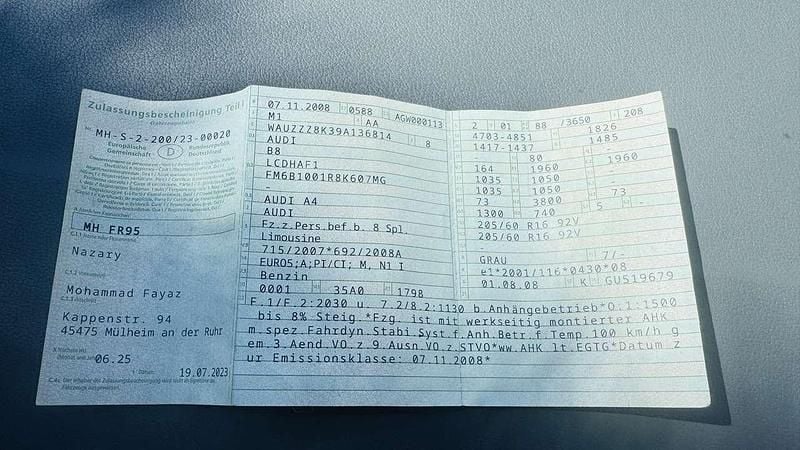 Zulassungsbescheinigung Teil I
Nr. MH-S-2-200/23-00020
Europäische Gemeinschaft
D
Bundesrepublik Deutschland
MH FR95
Nazary
Mohammad Fayaz
Kappenstr. 94
45475 Mülheim an der Ruhr
06.25
19.07.2023
07.11.2008 0588 AGW000113
M1 AA
WAUZZZ8K39A136814 8
AUDI
B8
LCDHAF1
FM6B1001R8K607MG
-
AUDI A4
AUDI
Fz.z.Pers.bef.b. 8 Spl.
Limousine
715/2007*692/2008A
EURO5;A;PI/CI; M, N1 I
Benzin
0001 35A0 1798
2 01 88 /3650 208
4703-4851 1826
1417-1437 1485
80
164 1960 1960
1035 1050 -
1035 1050 -
73 3800 73
1300 740 5 -
205/60 R16 92V
205/60 R16 92V
GRAU 7/-
e1*2001/116*0430*08
01.08.08 K GU519679
F.1/F.2:2030 u. 7.2/8.2:1130 b.Anhängebetrieb*O.1:1500
bis 8% Steig.*Fzg. ist mit werkseitig montierter AHK
m.spez.Fahrdyn.Stabi.Syst.f.Anh.Betr.f.Temp.100 km/h g
em.3.Aend.VO.z.9.Ausn.VO.z.STVO*ww.AHK lt.EGTG*Datum z
ur Emissionsklasse: 07.11.2008*